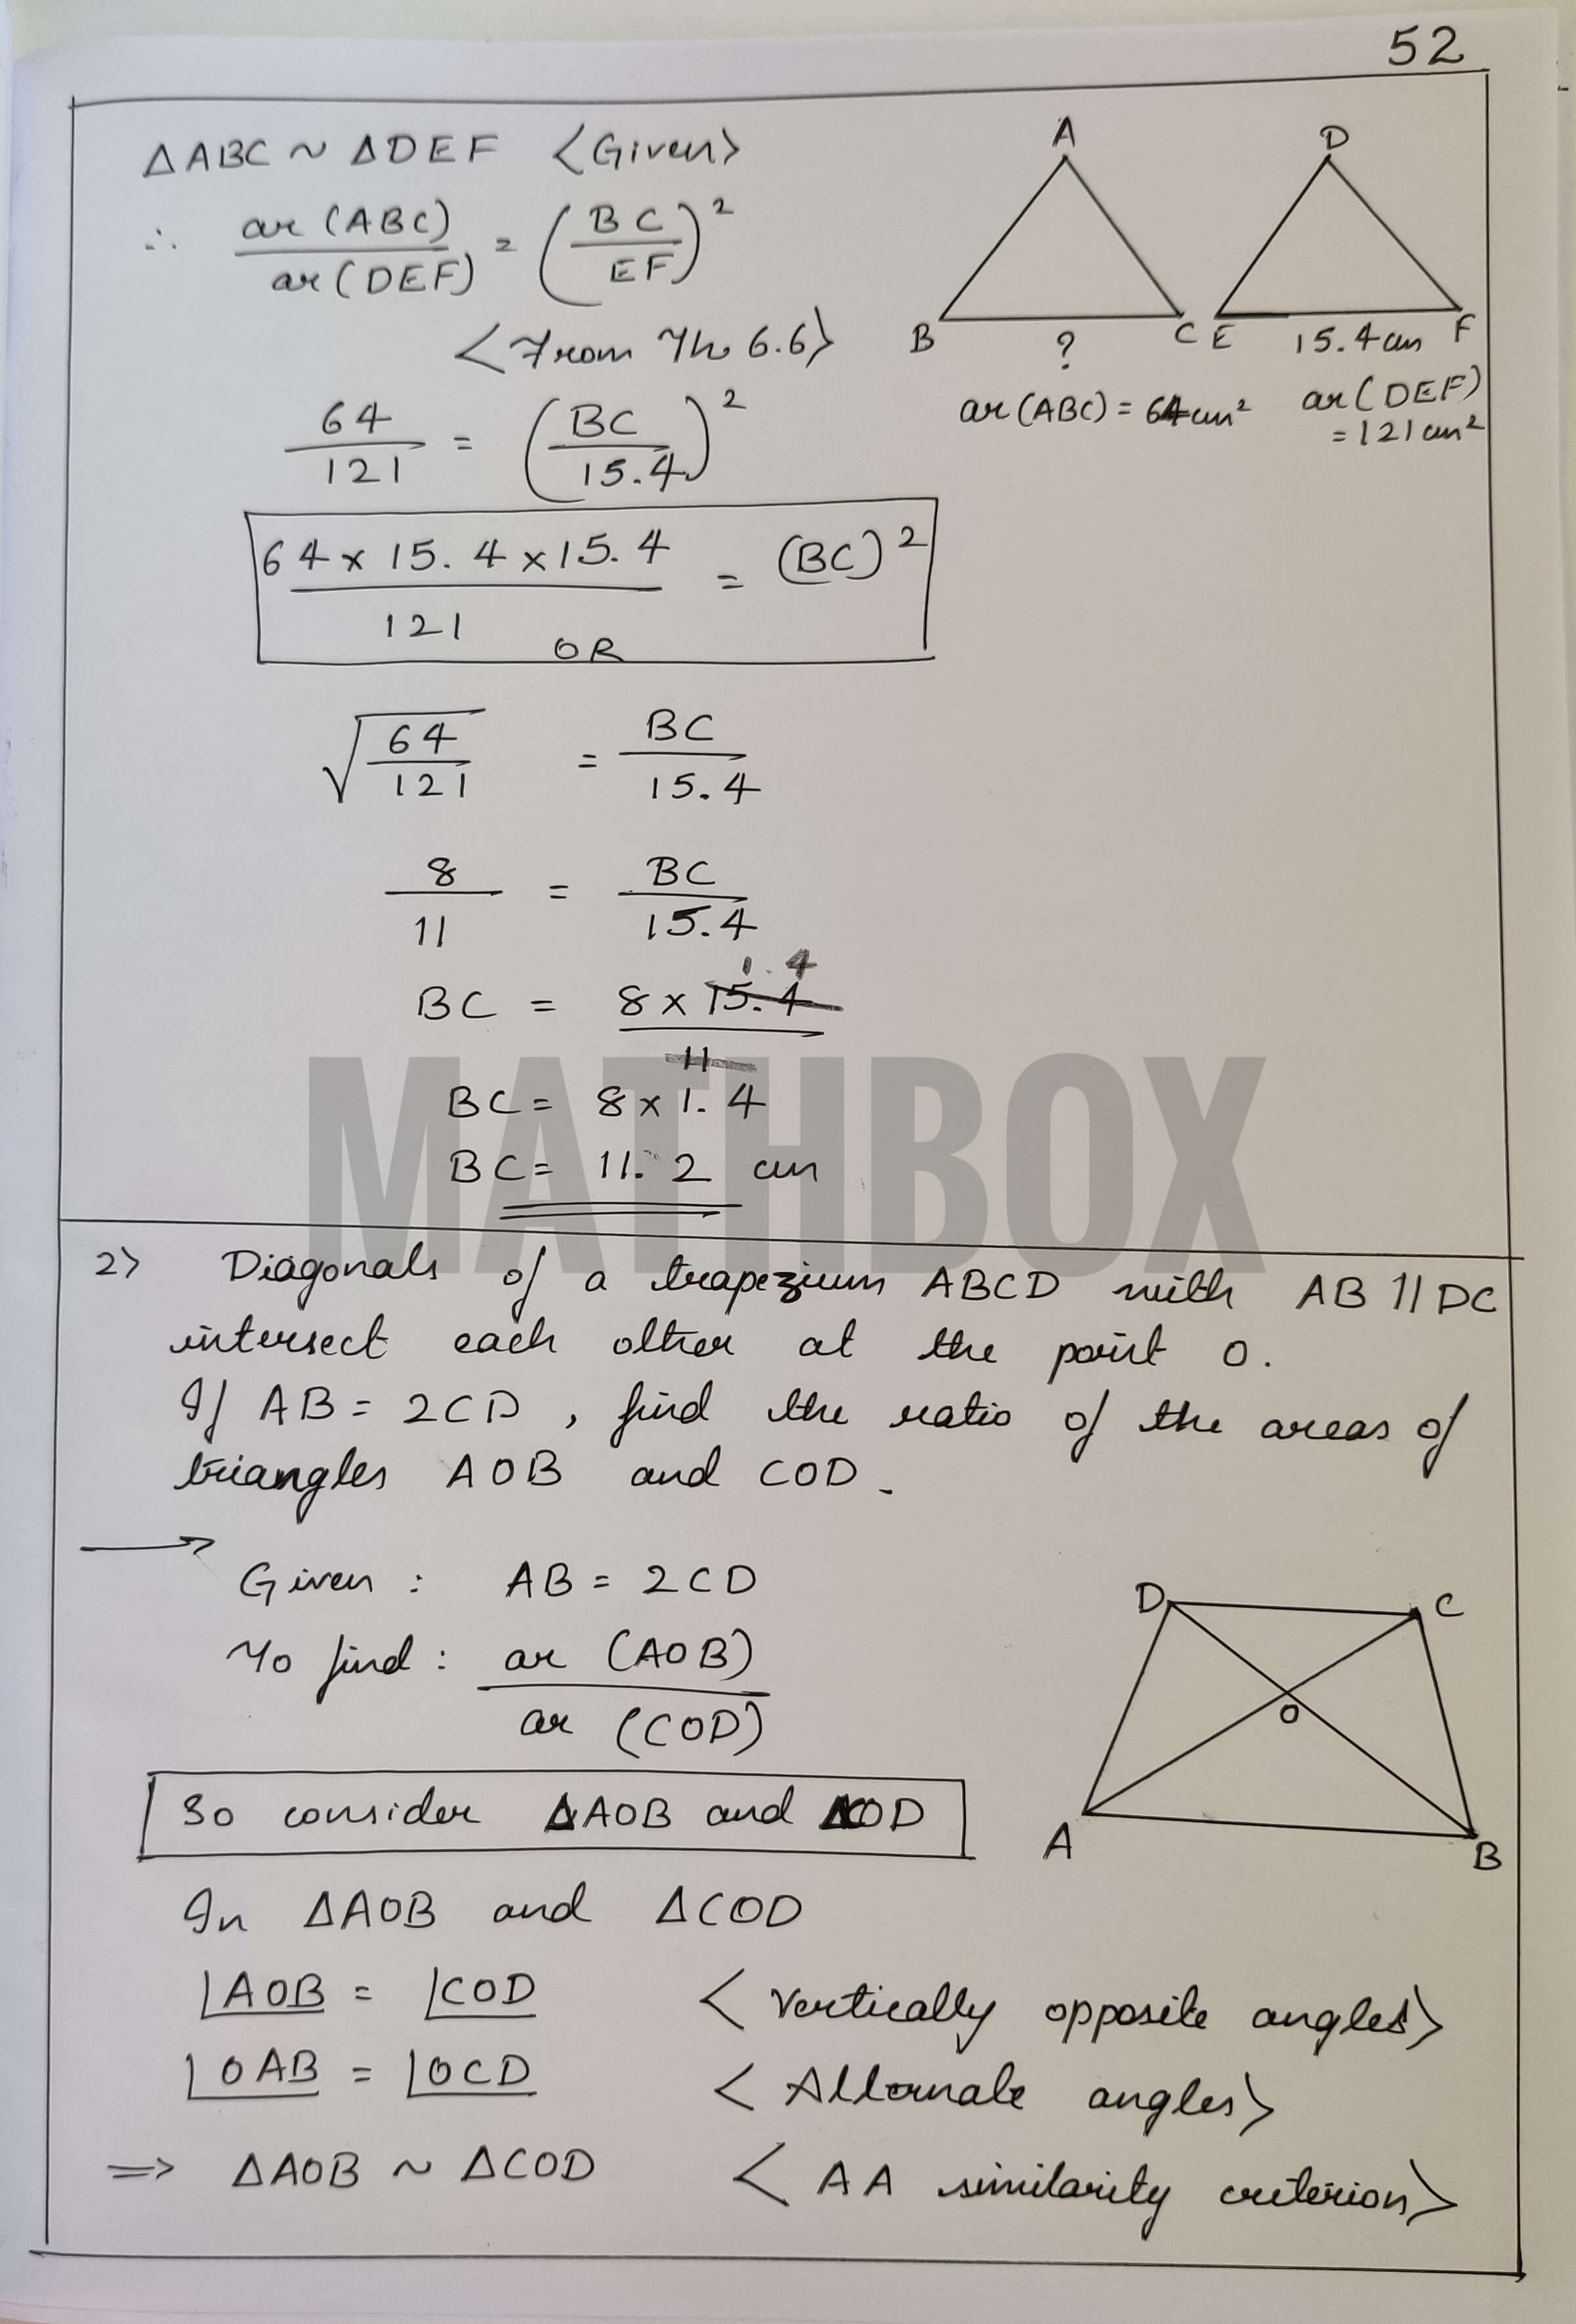 52
ΔABC ~ ΔDEF <Given>
∴ ar (ABC) / ar (DEF) = (BC / EF)²
<From Th 6.6>
64 / 121 = (BC / 15.4)²
64 x 15.4 x 15.4 / 121 = (BC)²
OR
√(64 / 121) = BC / 15.4
8 / 11 = BC / 15.4
1.4
BC = 8 x 15.4 / 11
BC = 8 x 1.4
BC = 11.2 cm
A
D
B
?
C
E
15.4 cm
F
ar (ABC) = 64 cm²
ar (DEF)
= 121 cm²
MATHBOX
2> Diagonals of a trapezium ABCD with AB || DC
intersect each other at the point O.
If AB = 2CD, find the ratio of the areas of
triangles AOB and COD.
→
Given : AB = 2CD
To find : ar (AOB) / ar (COD)
So consider ΔAOB and ΔCOD
D
C
O
A
B
In ΔAOB and ΔCOD
∠AOB = ∠COD <Vertically opposite angles>
∠OAB = ∠OCD <Alternate angles>
=> ΔAOB ~ ΔCOD <AA similarity criterion>